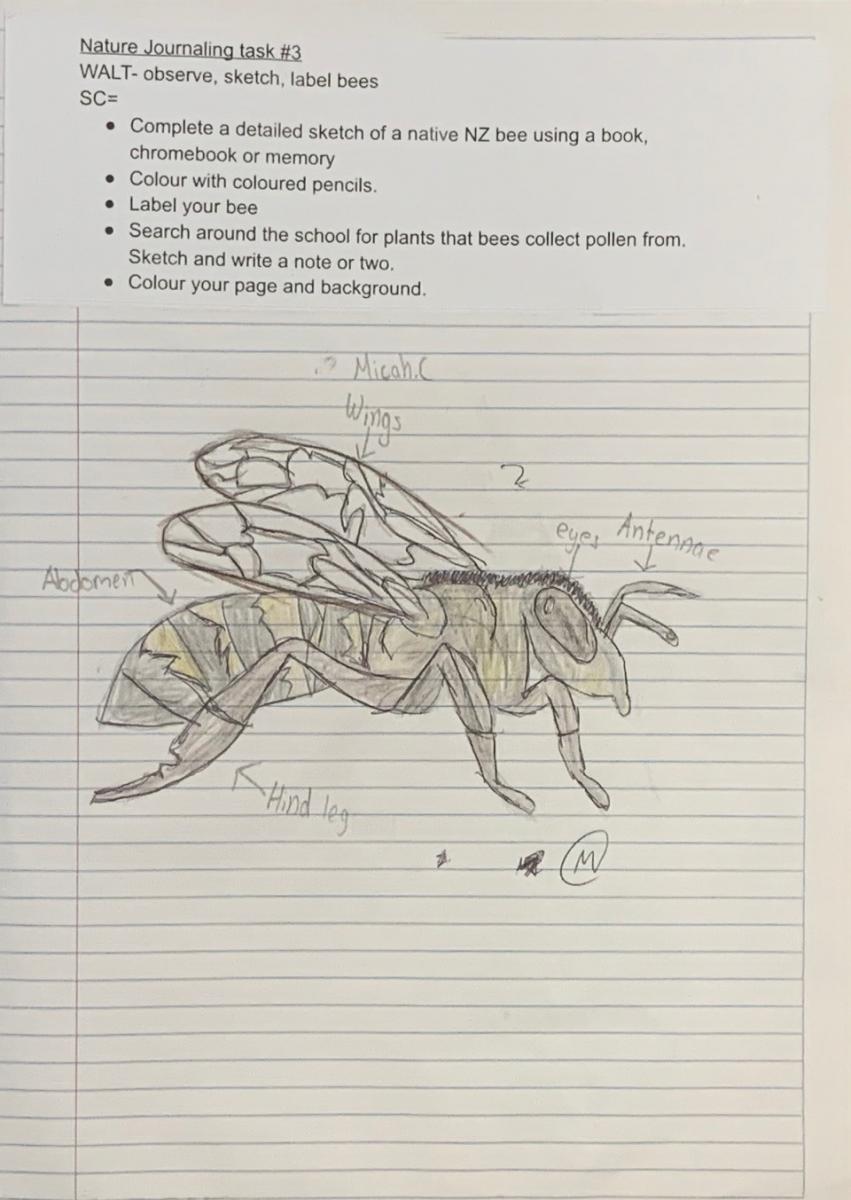 Nature Journaling task #3
WALT- observe, sketch, label bees
SC=
• Complete a detailed sketch of a native NZ bee using a book,
chromebook or memory
• Colour with coloured pencils.
• Label your bee
• Search around the school for plants that bees collect pollen from.
Sketch and write a note or two.
• Colour your page and background.
Micah.C
Wings
2
eyes Antennae
Abdomen
Hind leg
M